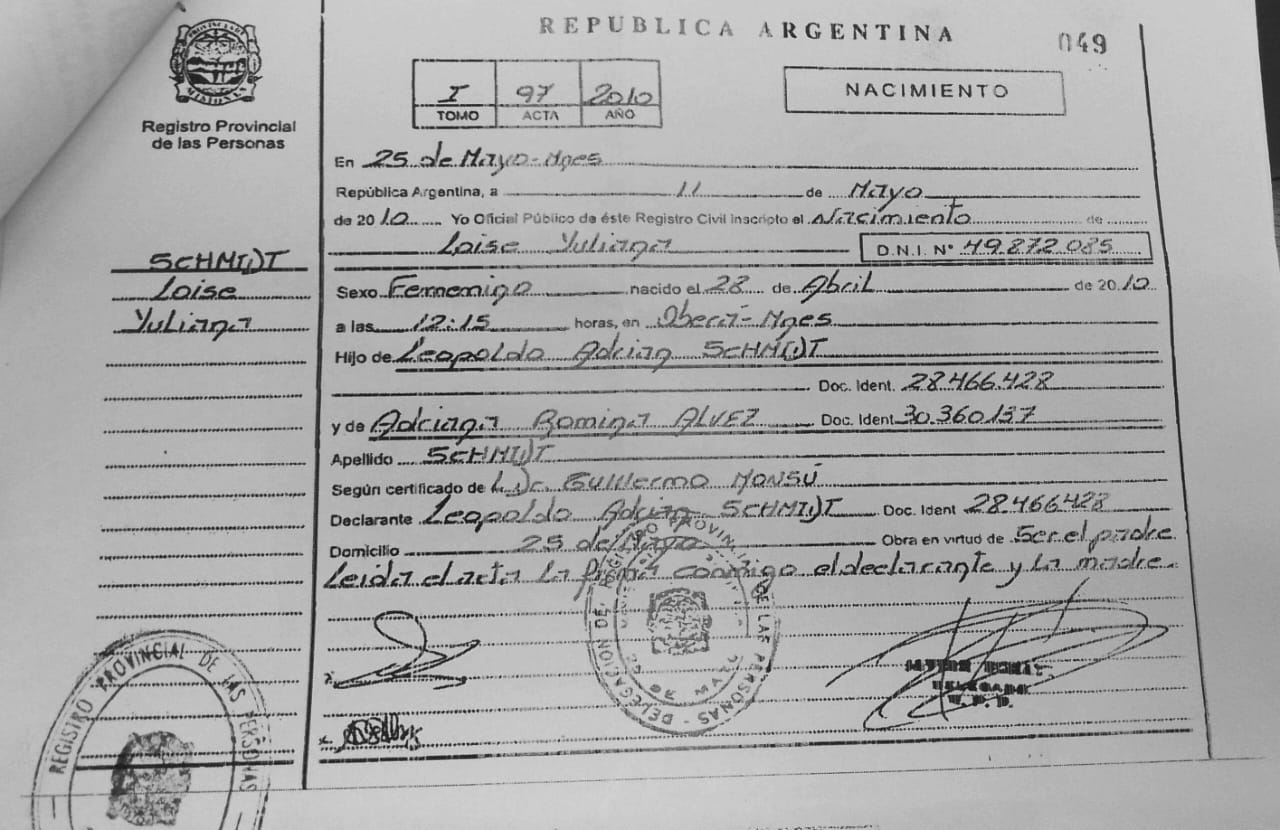 REPUBLICA ARGENTINA
049
PROVINCIA DE
MISIONES
Registro Provincial
de las Personas
I 97 2010
TOMO ACTA AÑO
NACIMIENTO
En 25 de Mayo - Mnes
República Argentina, a 11 de Mayo
de 2010 Yo Oficial Público de éste Registro Civil Inscripto el Nacimiento de
Loise Yuliana D.N.I. N° 49.872.085
SCHMIDT
Loise
Yuliana
Sexo Femenino nacido el 28 de Abril de 2010
a las 12:15 horas, en Oberá - Mnes
Hijo de Leopoldo Adrian SCHMIDT
Doc. Ident. 28.466.428
y de Adriana Romina ALVEZ Doc. Ident 30.360.137
Apellido SCHMIDT
Según certificado de Dr. Guillermo MONSÚ
Declarante Leopoldo Adrian SCHMIDT Doc. Ident 28.466.428
Domicilio 25 de Mayo Obra en virtud de Ser el padre
Leida el acta la firma conmigo el declarante y la madre.
DELEGACION DE REGISTRO PROVINCIAL DE LAS PERSONAS
25 DE MAYO
DELEGADA
R. P. P.
REGISTRO PROVINCIAL DE LAS PERSONAS